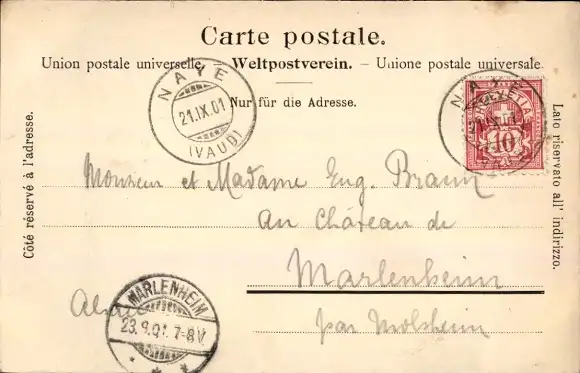 Carte postale.
Union postale universelle. – Weltpostverein. – Unione postale universale.
Nur für die Adresse.
Côté réservé à l'adresse.
Lato riservato all' indirizzo.
NAYE
21.IX.01
(VAUD)
NAYE
21.IX.01
HELVETIA
10
Monsieur et Madame Eug. Braun
Au Château de
Marlenheim
par Molsheim
MARLENHEIM
23.9.01. 7-8V.